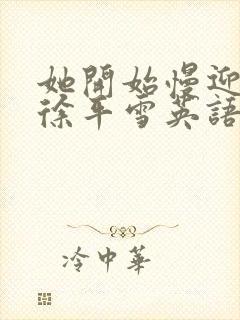 她開始慢迎
徐平雪英語
冷中華